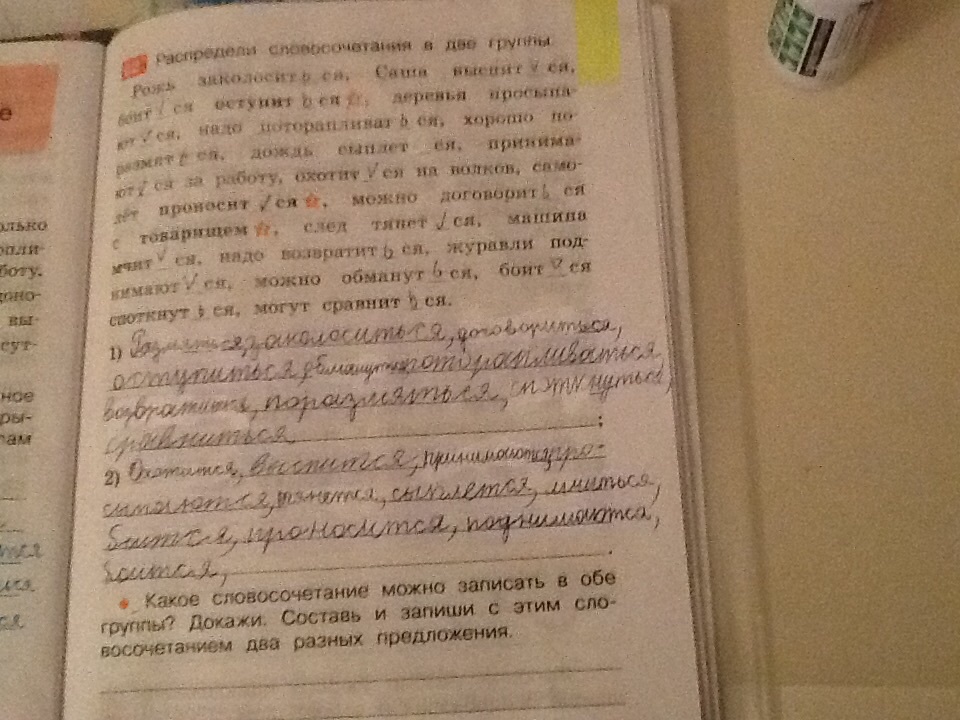 Распредели словосочетания в две группы.
Рожь заколосит ь ся, Саша выспит ся,
боит ся оступит ь ся, деревья просыпа-
ют ся, надо поторапливат ь ся, хорошо по-
размят ь ся, дождь сыплет ся, принима-
ют ся за работу, охотит ся на волков, само-
лёт проносит ся, можно договорит ь ся
с товарищем, след тянет ся, машина
мчит ся, надо возвратит ь ся, журавли под-
нимают ся, можно обманут ь ся, боит ся
споткнут ь ся, могут сравнит ь ся.
1) Размяться, заколоситься, договориться,
оступиться, обмануться поторапливаться,
возвратиться, поразмяться, споткнуться,
сравниться ;
2) Охотится, выспится, принимаются про-
сыпаются, тянется, сыплется, мчиться,
боится, проносится, поднимаются,
боится, .
Какое словосочетание можно записать в обе
группы? Докажи. Составь и запиши с этим сло-
восочетанием два разных предложения.
е
олько
опи-
боту.
доно-
вы-
сут-
ное
ры-
лам
тся
ся